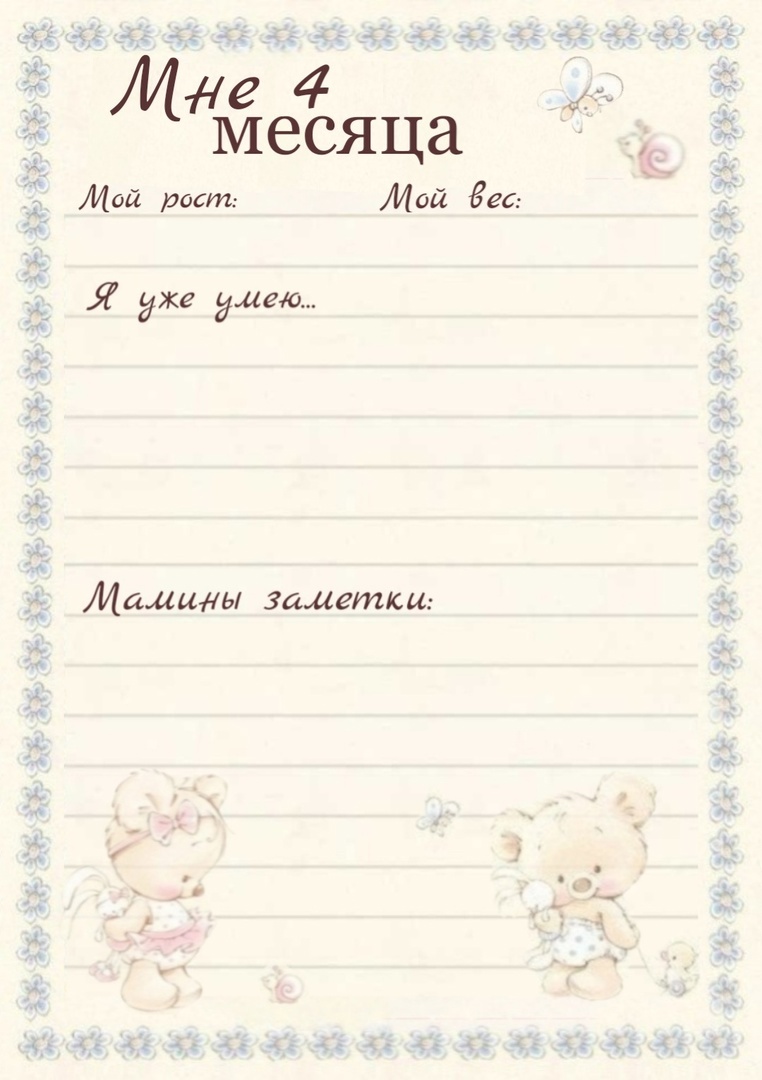 Мне 4
месяца
Мой рост: Мой вес:
Я уже умею...
Мамины заметки: